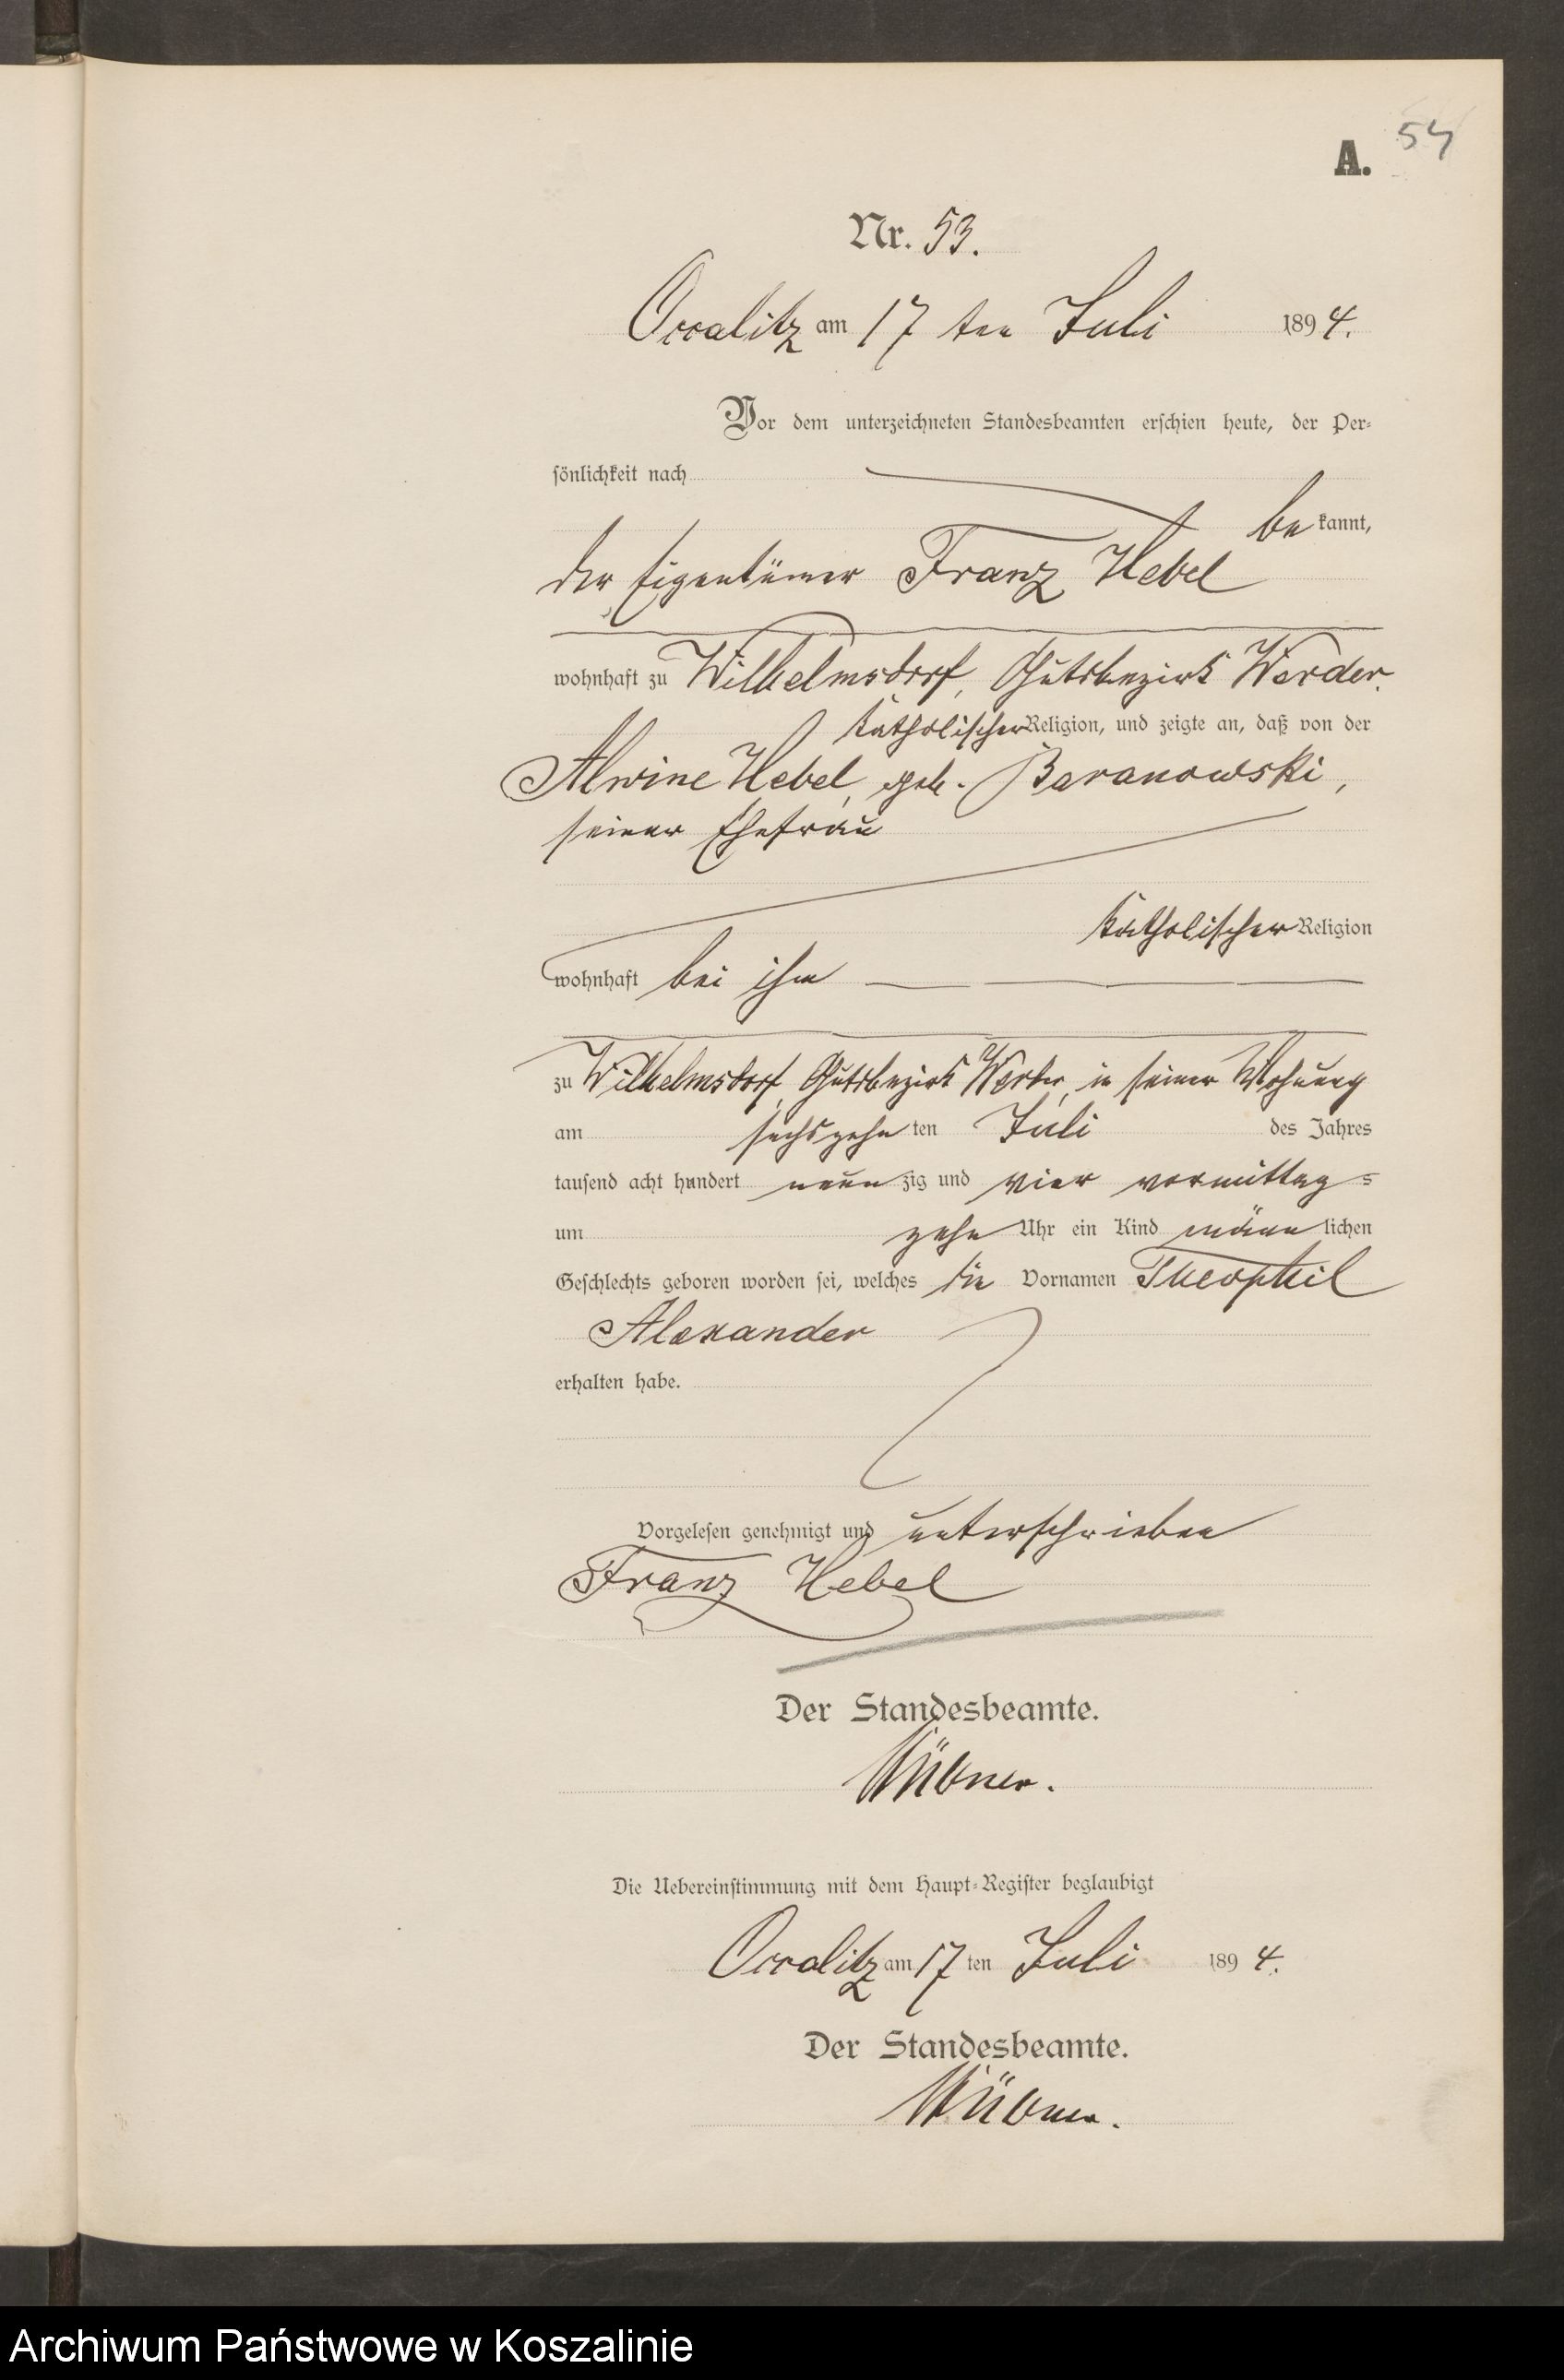 54
A.
Nr. 53.
Ossalitz am 17 ten Juli 1894.
Vor dem unterzeichneten Standesbeamten erschien heute, der Per-
sönlichkeit nach
bekannt,
der Eigentümer Franz Hebel
wohnhaft zu Wilhelmsdorf, Gutsbezirk Werder,
katholischer Religion, und zeigte an, daß von der
Alwine Hebel, geb. Baranowski,
seiner Ehefrau
katholischer Religion
wohnhaft bei ihm
zu Wilhelmsdorf, Gutsbezirk Werder, in seiner Wohnung
am sechszehn ten Juli des Jahres
tausend acht hundert neunzig und vier vormittag-
um zehn Uhr ein Kind männlichen
Geschlechts geboren worden sei, welches die Vornamen Theophil
Alexander
erhalten habe.
Vorgelesen genehmigt und unterschrieben
Franz Hebel
Der Standesbeamte.
Die Uebereinstimmung mit dem Haupt-Register beglaubigt
Ossalitz am 17 ten Juli 1894.
Der Standesbeamte.
Archiwum Państwowe w Koszalinie